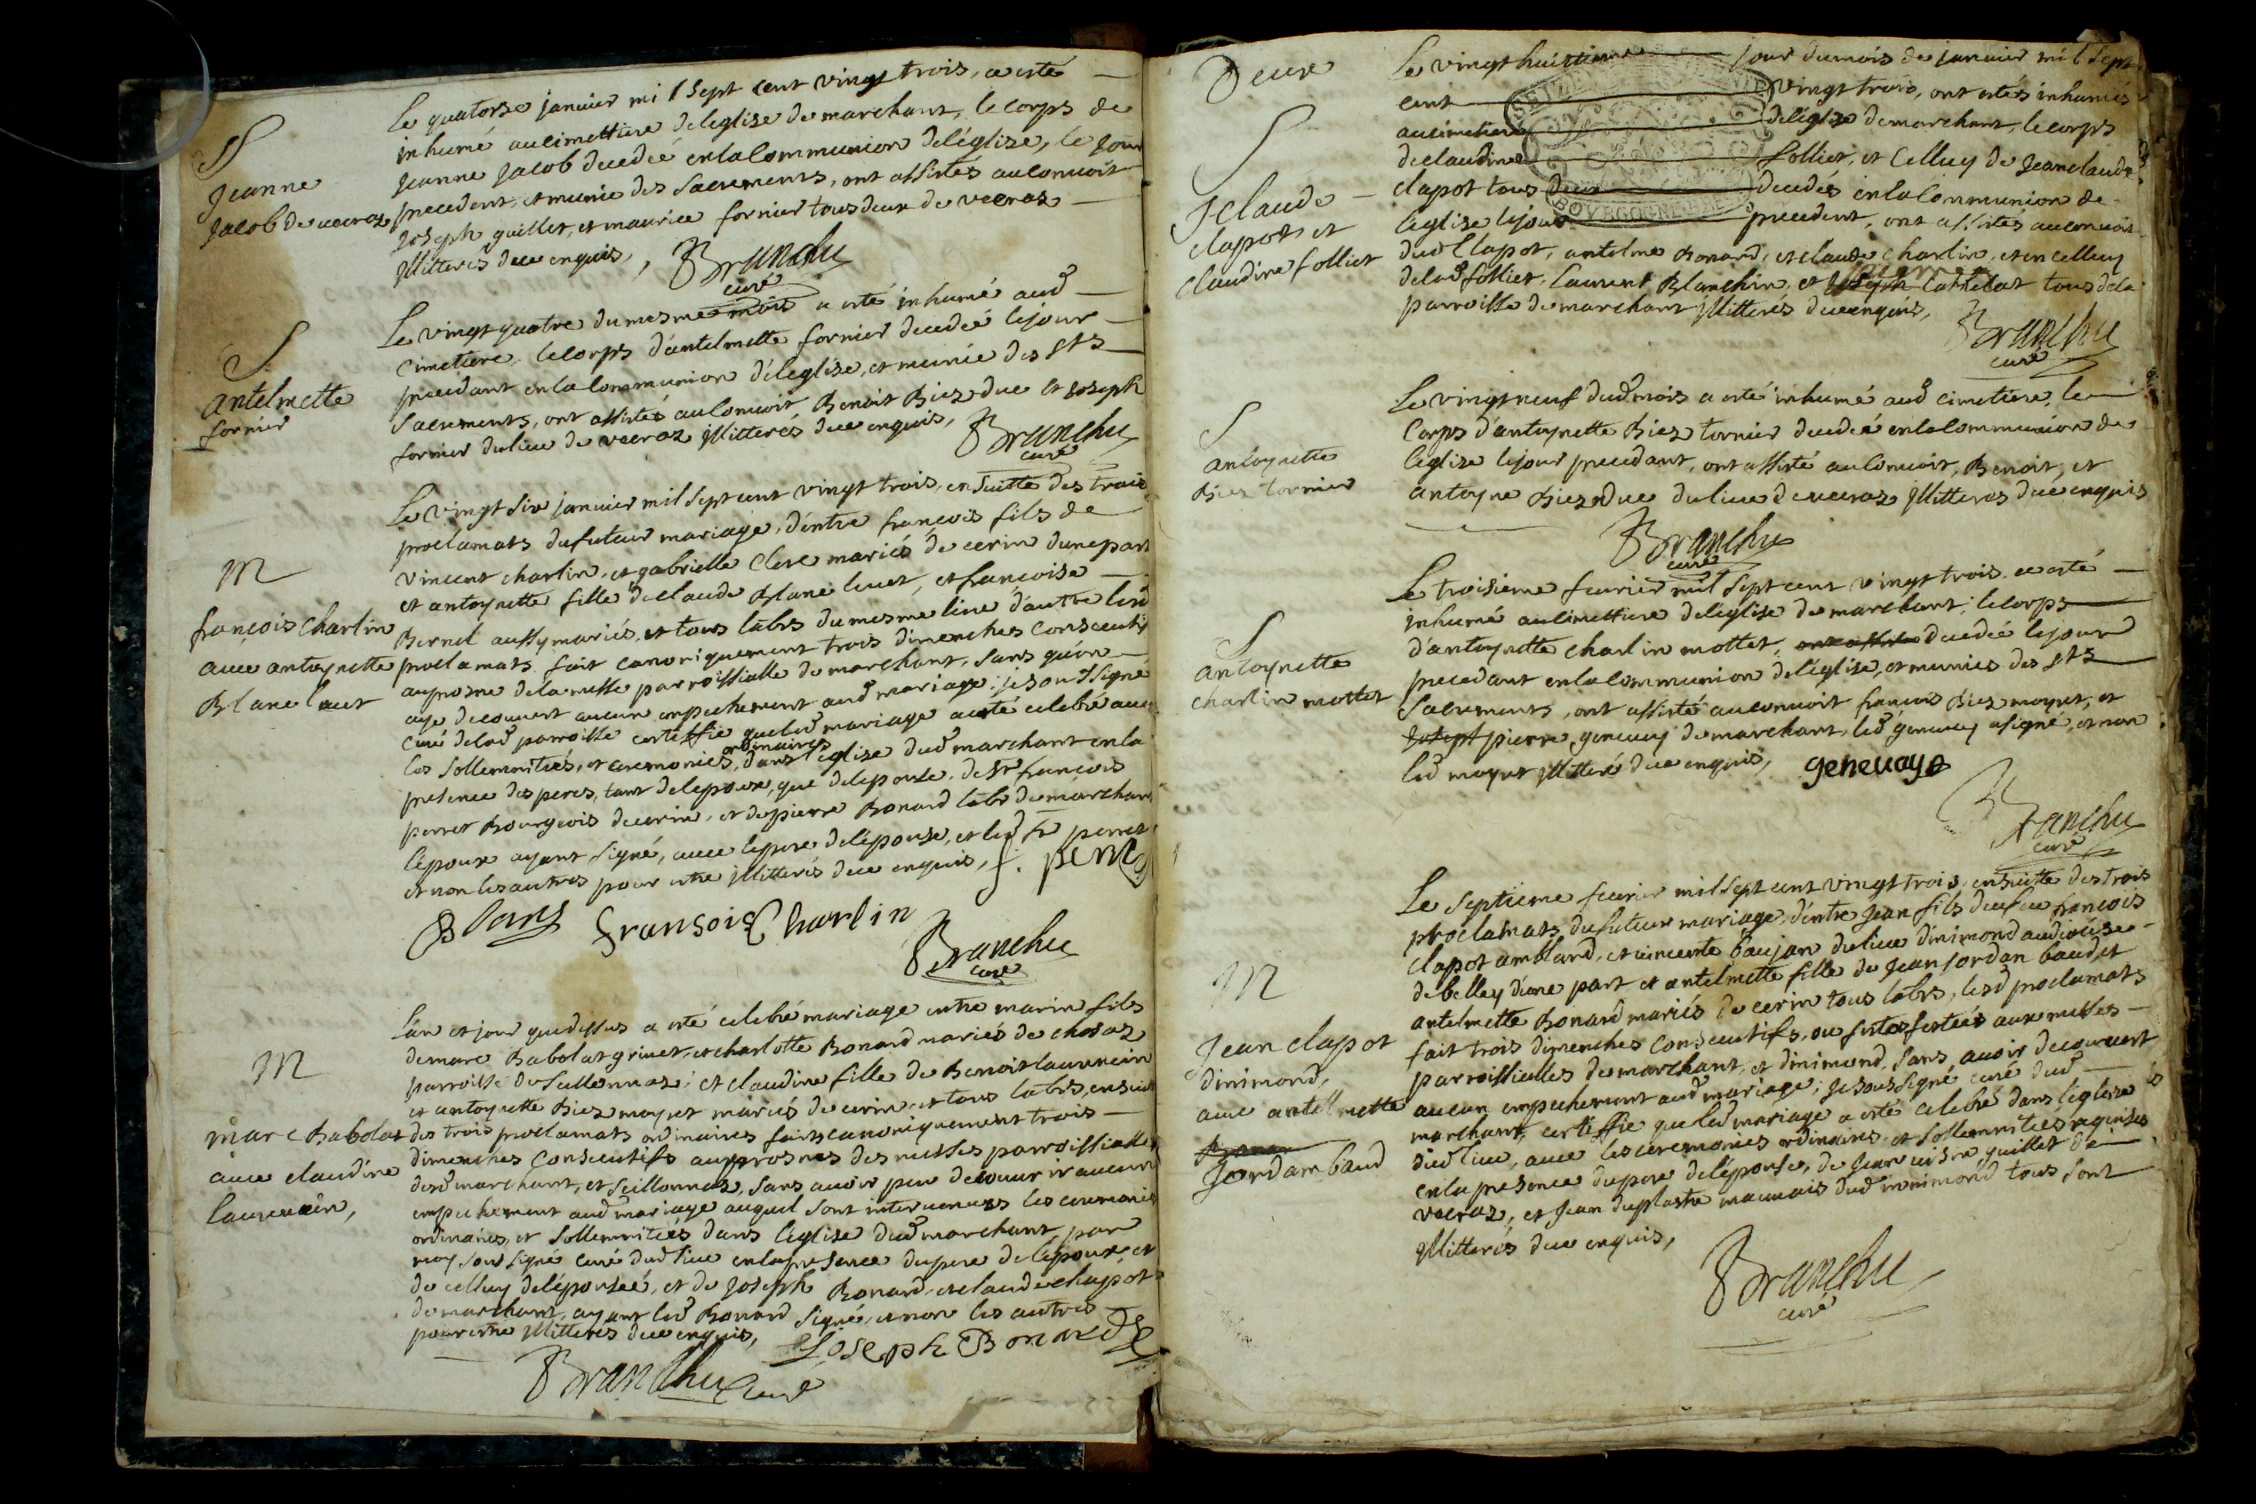 S
Jeanne
Jacob de vecraz
Le quatorse janvier mil sept cent vingt trois, a esté
inhumé au cimettiere de leglize de marchant, le corps de
Jeanne Jacob decedeé en la Communion de léglize, le jour
precedent, et munie des sacrements, ont assistés au convoit
Joseph guillet, et maurice fornier tous deux de vecraz
jllitterés de ce enquis,
Branchu
curé
S
antelmette
fornier
Le vingt quatre du mesme mois a esté inhumé aud
Cimetiere le corps d'antelmette fornier decedeé le jour
precedant en la Communion de léglize, et munie des sts
Sacrements, ont assistés au Convoit Benoit Biez duc et Joseph
fornier du lieu de vecraz jllitterés de ce enquis,
Branchu
curé
M
françois Charlin
avec antoynette
Blanc luet
Le vingt six janvier mil sept cent vingt trois, ensuitte des trois
proclamats du futeur mariage, d'entre françois fils de
vincent charlin, et gabrielle Clerc mariés de cerin dune part
et antoynette fille de claude Blanc luet, et françoise
Bernel aussy mariés, et tous labrs du mesme lieu d'autre lesd
proclamats fait canoniquement trois dimenches Consecutifs
au prosne de la messe parroissialle de marchant, sans qu'on
aye decouvert aucun empechement aud mariage; je soussigné
Curé de lad parroisse certiffie que led mariage a esté celebré avec
les sollemnitéés, et ceremonies ordinaires, dans leglize dud marchant en la
presence des peres, tant de lepoux, que de lepouse, de sr françois
perret Bourgeois de cerin, et de pierre Bonard labr de marchant
lepoux ayant signé, avec le pere de lépouse, et led sr perret
et non les autres pour estre jllitterés de ce enquis, f. perret
Blanc fransois Charlin
Branchu
curé
M
marc Babolat
avec claudine
laurencin,
L'an et jour que dessus a esté celebré mariage entre marin fils
de marc Babolat grivet, et charlotte Bonard mariés de chosaz
parroisse de seillonnaz; et claudine fille de Benoit laurencin
et antoynette Biez moyret mariés de cerin, et tous labrs, ensuitte
des trois proclamats ordinaires faits canoniquement trois
dimenches Consecutifs aux prosnes des messes parroissialles
desd marchant, et seillonnaz, sans avoir peu decouvrir aucun
empechement aud mariage auquel sont intervenues les ceremonies
ordinaires, et sollemnitéés dans leglize dud marchant par
moy soussigné curé dud lieu en la presence du pere de lépoux, et
de celluy de lépouseé, et de Joseph Bonard, et claude chapot
de marchant, ayant led Bonard signé, et non les autres
pour estre jllitterés de ce enquis,
Joseph Bonard
Branchu curé
Deux
S
J claude
clapot et
claudine follict
Le vingt huictieme jour du mois de janvier mil sept
cent vingt trois, ont estés inhumés
au cimetiere de léglize de marchant, le corps
de claudine follict, et Celluy de Jean claude
clapot tous deux decedés en la Communion de
leglize le jour precedent, ont assistés au convoit
dud Clapot, antelme Bonard, et claude charlin, et en celluy
de lad follict, Laurent Blanchin, et Cattelat tous de la
parroisse de marchant jllitterés de ce enquis,
Branchu
curé
S
antoynette
Biez tornier
Le vingt neuf dud mois a esté inhumé aud cimetiere, le
Corps d'antoynette Biez tornier decedeé en la Communion de
léglize le jour precedant, ont assisté au Convoit, Benoit, et
antoyne Biez duc du lieu de vecraz jllitterés de ce enquis
Branchu
curé
S
antoynette
charlin mottet
Le troisieme fevrier mil sept cent vingt trois a esté
inhumé au cimettiere de leglize de marchant, le corps
d'antoynette charlin mottet, decedeé le jour
precedant en la communion de léglize, et munies des sts
Sacrements, ont assisté au convoit françois Biez moyret, et
Joseph pierre genevey de marchant, led genevey a signé, et non
led moyret jllitteré de ce enquis, genevaye
Branchu
curé
M
Jean clapot
dinimond,
avec antelmette
Jordam baud
Le septieme fevrier mil sept cent vingt trois, ensuitte des trois
proclamats du futeur mariage, d'entre Jean fils de feu françois
clapot amblard, et vincente baujan du lieu dinimond au dioceise
de belley d'une part et antelmette fille de Jean Jordan baud, et
antelmette Bonard mariés de cerin tous labrs, lesd proclamats
fait trois dimenches consecutifs, ou festes festéés aux messes
parroissialles de marchant, et dinimond, sans avoir decouvert
aucun empechement aud mariage; je soussigné curé dud
marchant, certiffie que led mariage a esté celebré dans leglize
dud lieu, avec les ceremonies ordinaires, et sollemnitéés requises
en la presence du pere de lépouse, de Jean guillet de
vecraz, et Jean duplastre mauvais dud innimond tous sont
jllitterés de ce enquis,
Branchu
curé